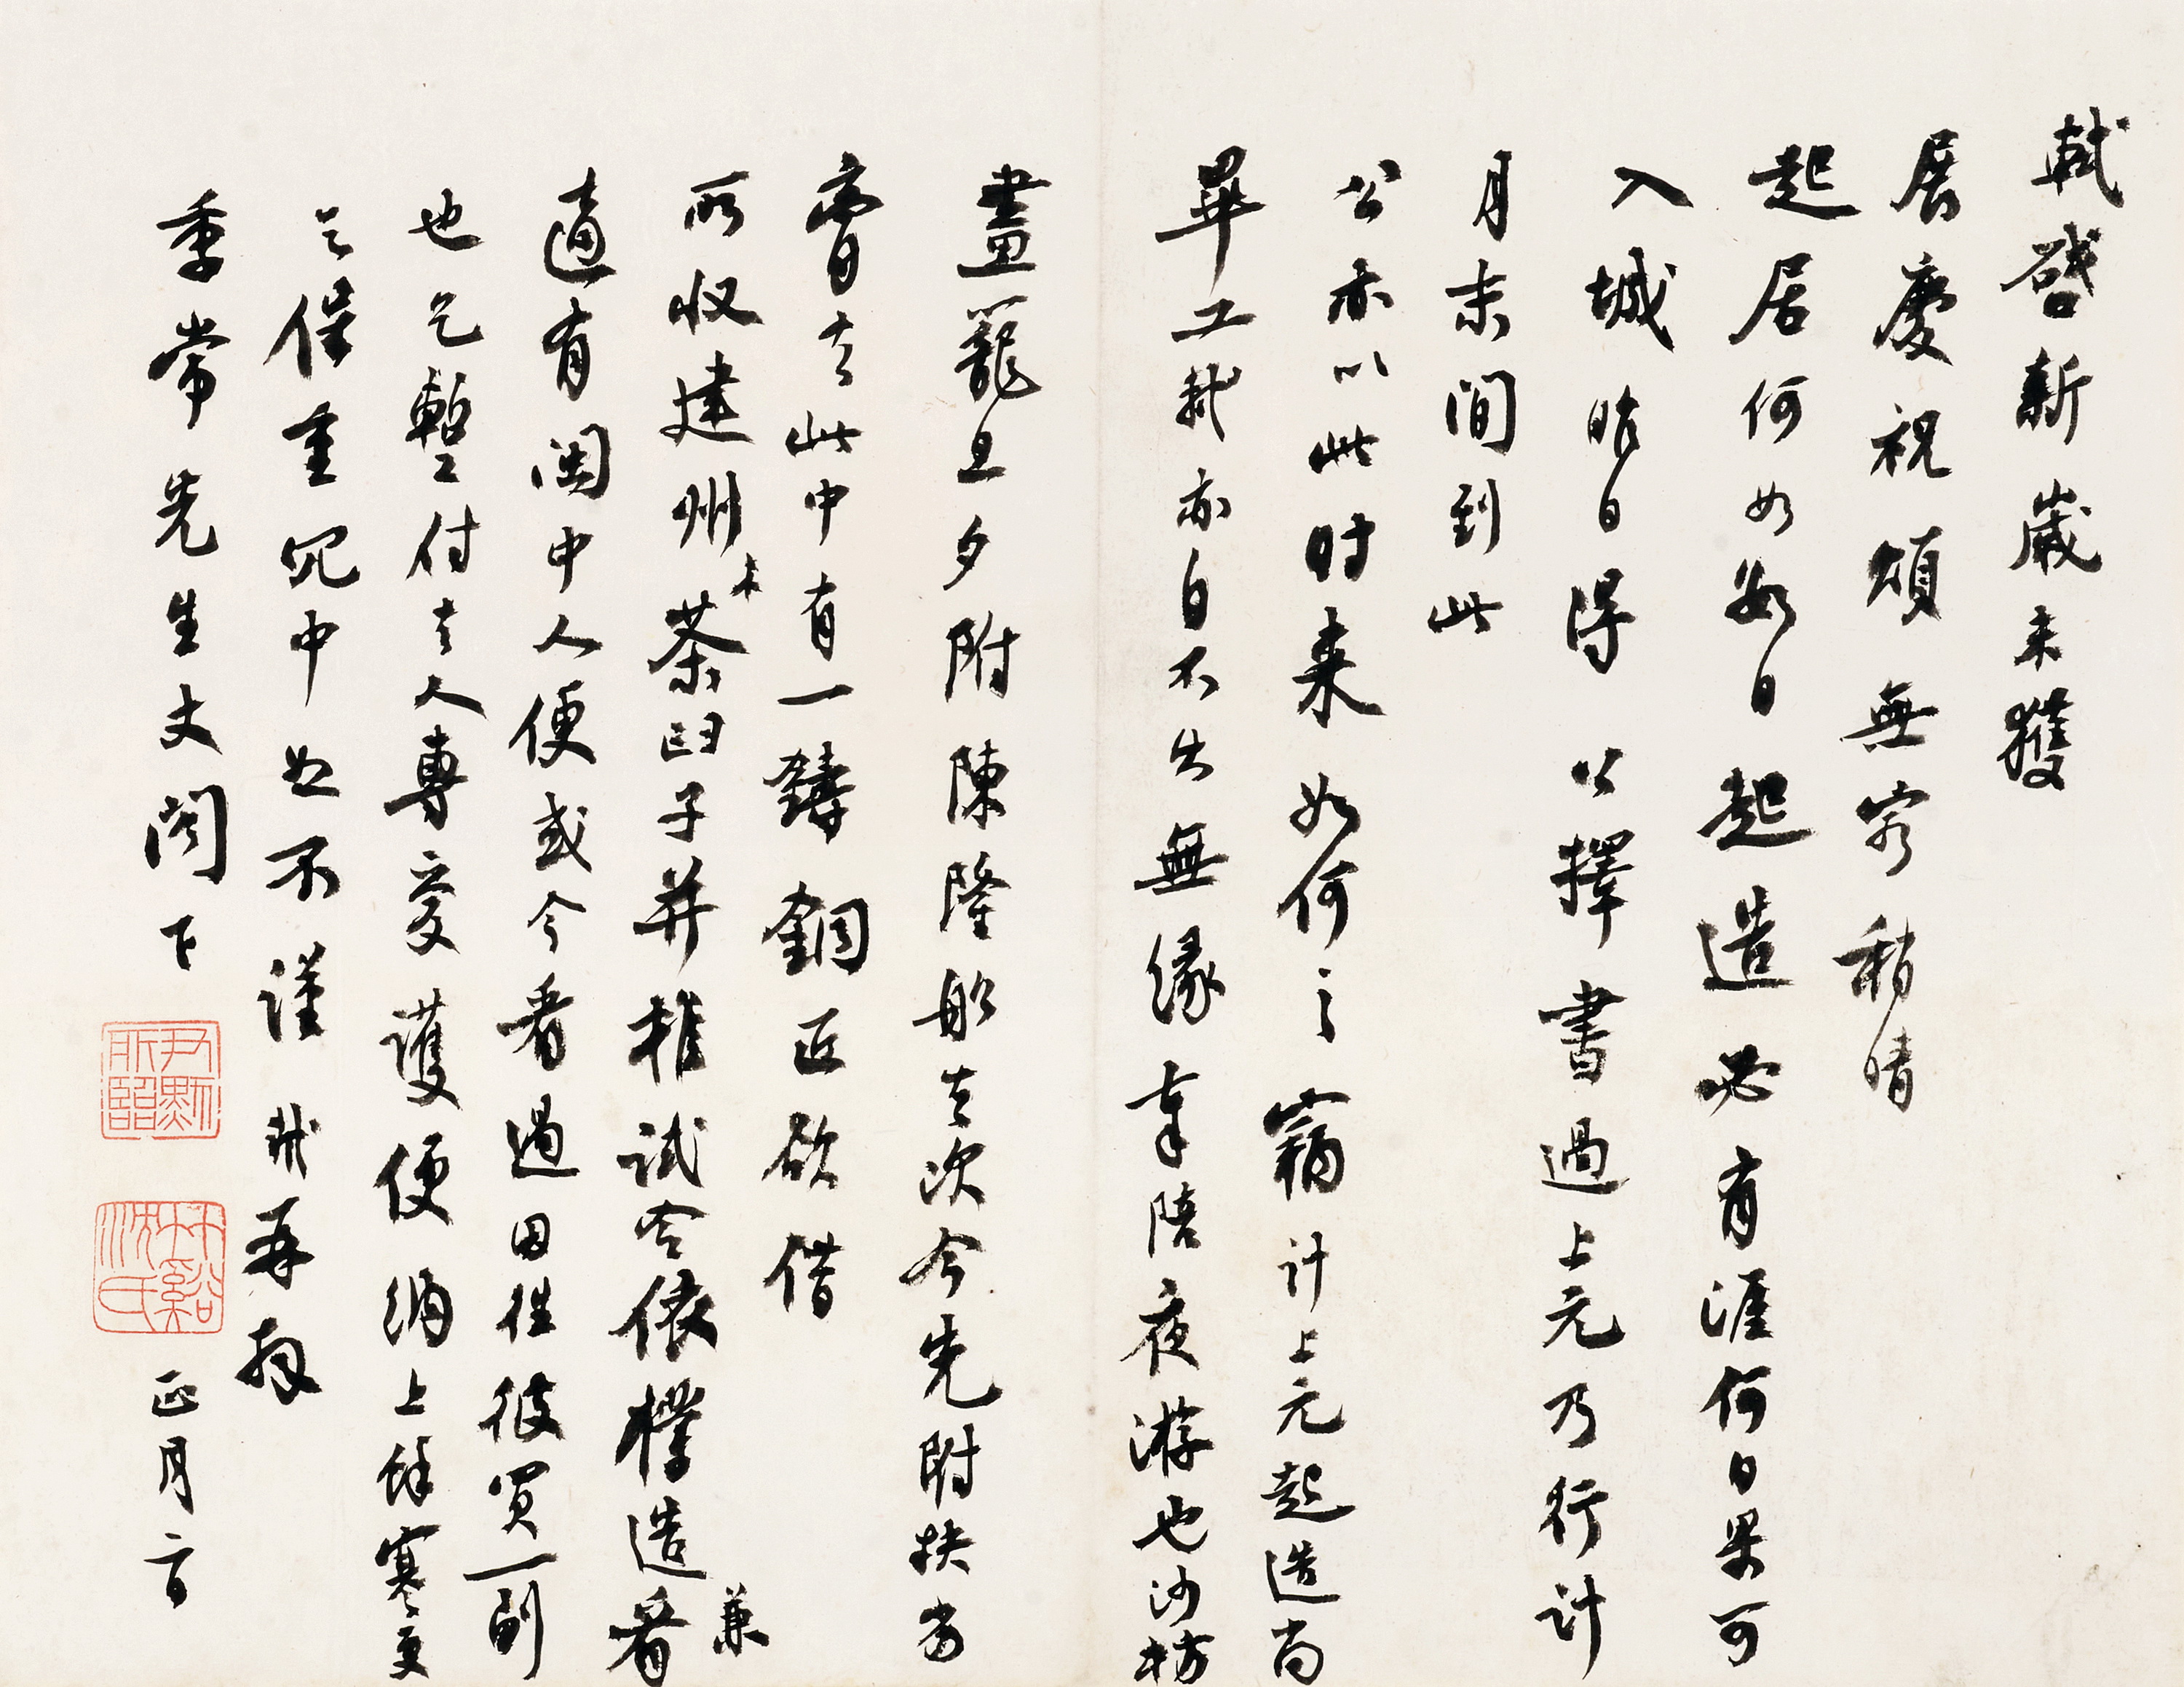 軾啓新歲未獲
展慶祝頌無窮稍晴
起居何如數日起造必有涯何日果可
入城昨日得公擇書過上元乃行計
月末間到此
公亦以此時來如何〻竊計上元起造尚
畢工軾亦自不出無緣奉陪夜游也沙枋
畫籠旦夕附陳隆船去次今先附扶劣
膏去此中有一鑄銅匠欲借
所收建州木茶臼子并椎試令依樣造看兼
適有閩中人便或令看過因往彼買一副
也乞暫付去人專愛護便納上餘寒更
乞保重冗中恕不謹軾再拜
季常先生丈閣下
正月二日
尹默所臨
林谿沈氏